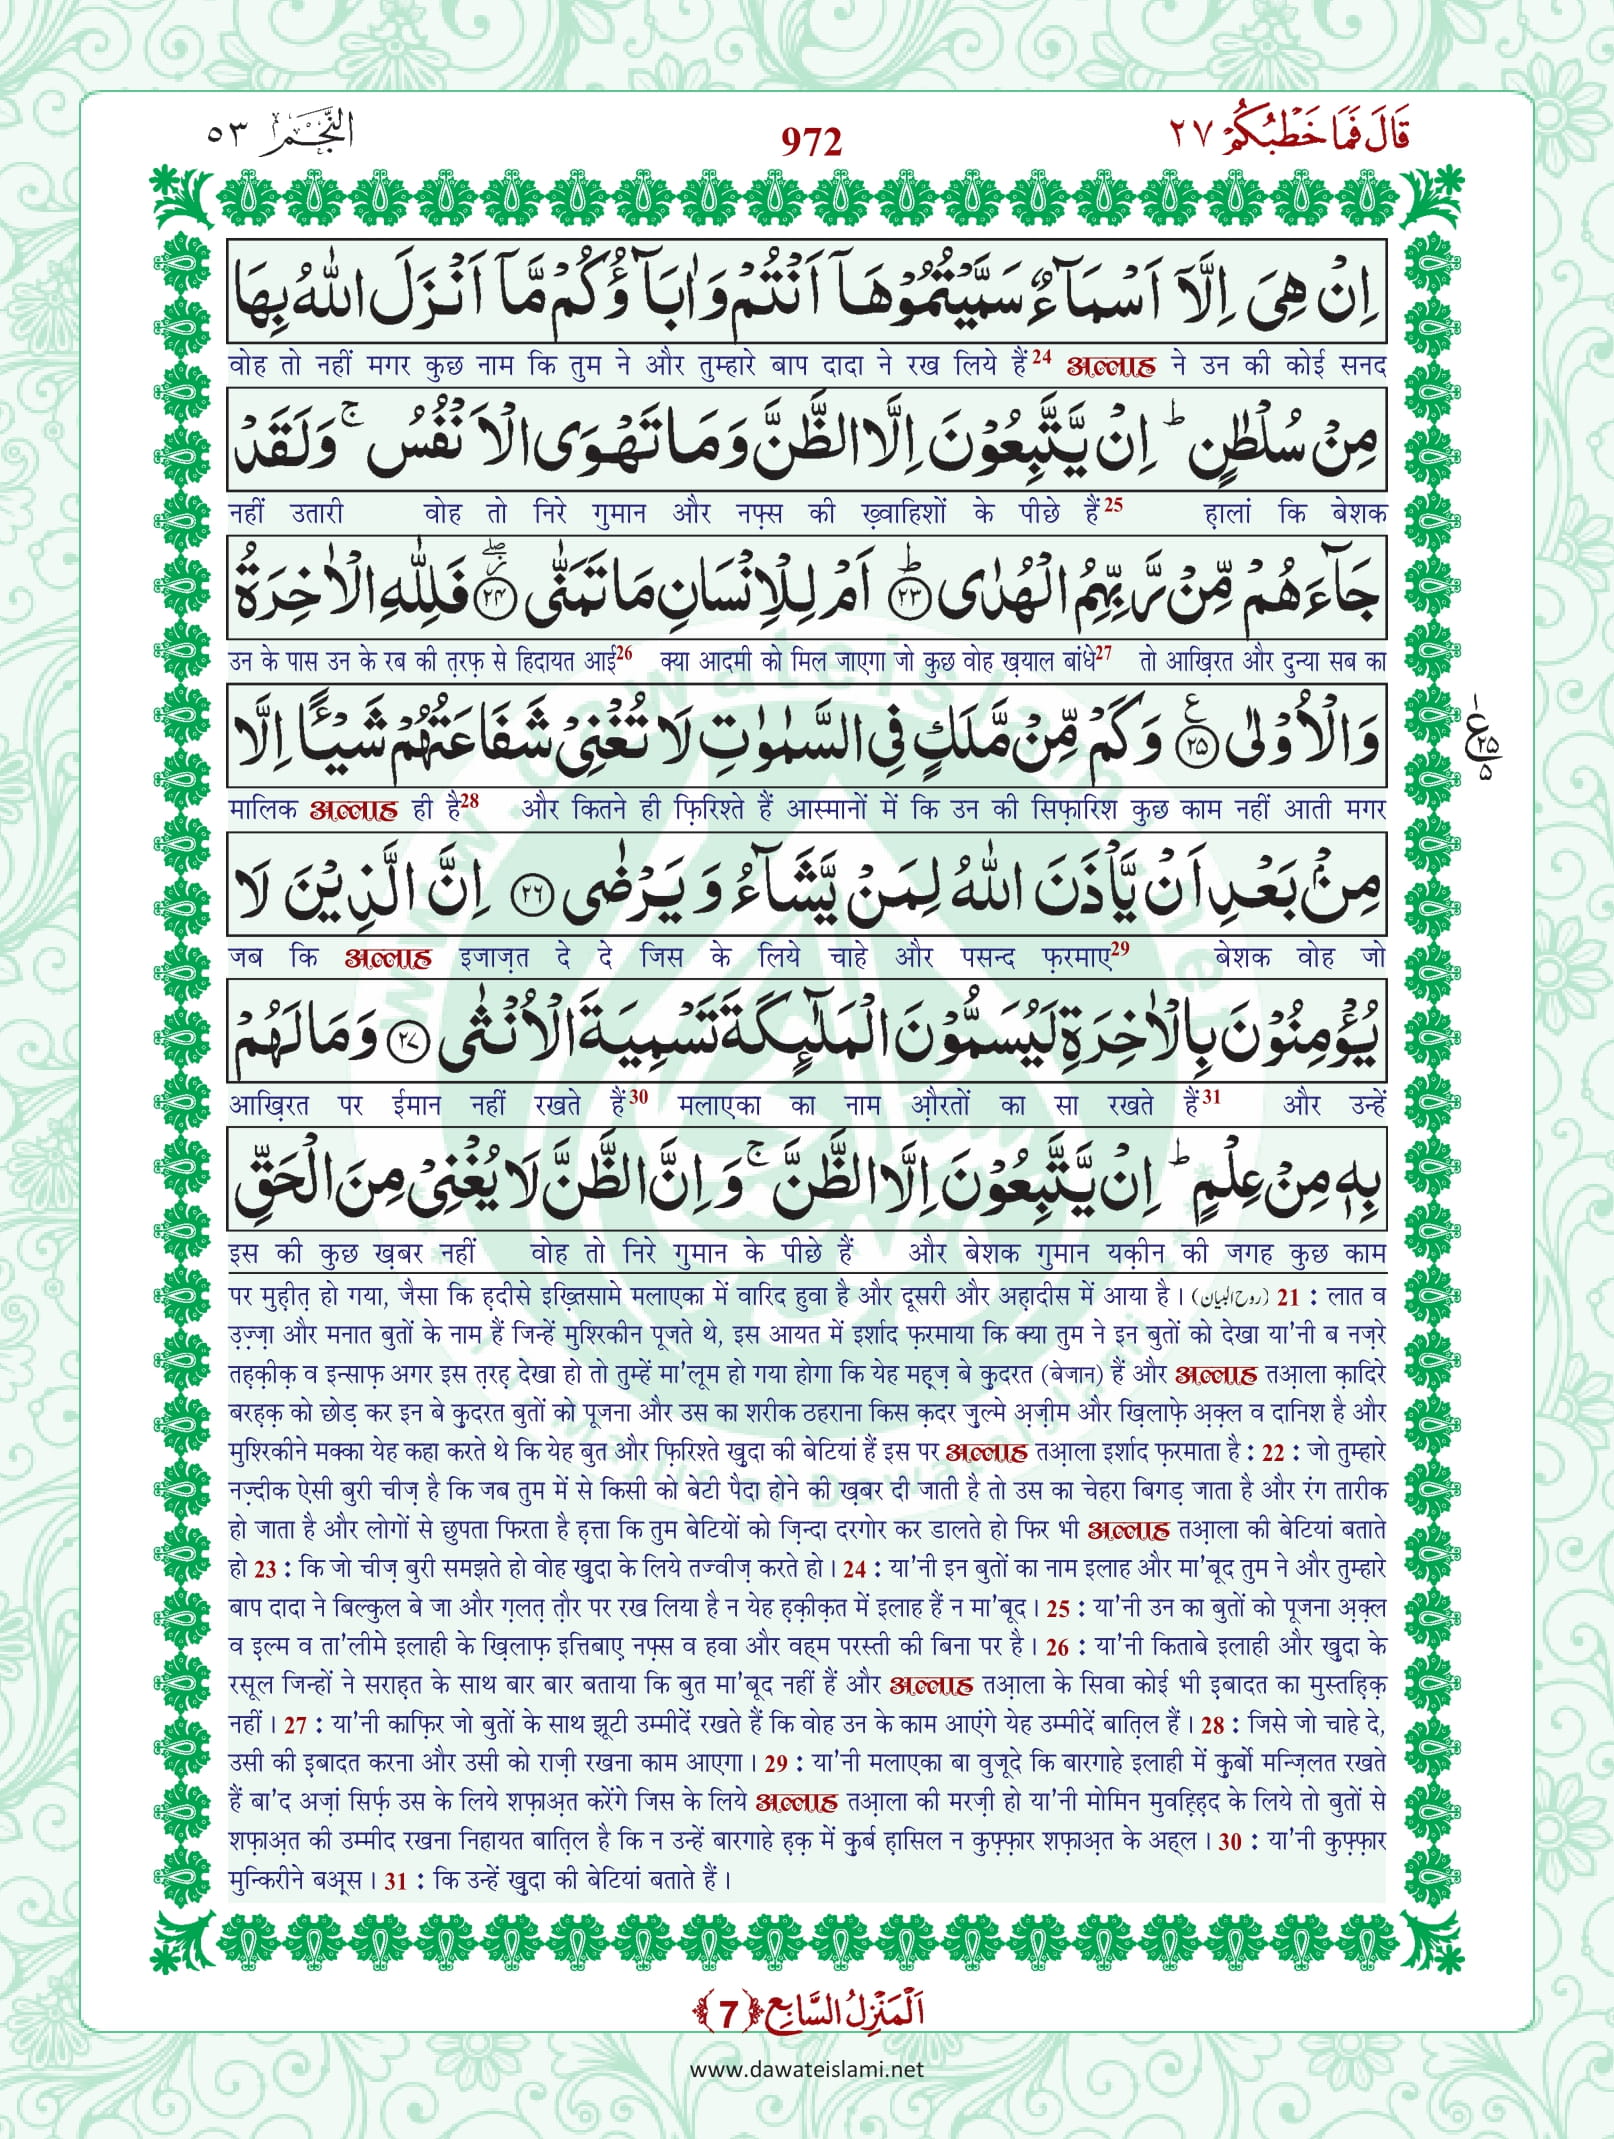 قَالَ فَمَا خَطْبُكُمْ ٢٧
972
النَّجْم ٥٣
اِنْ هِیَ اِلَّاۤ اَسْمَآءٌ سَمَّیْتُمُوْهَاۤ اَنْتُمْ وَ اٰبَآؤُكُمْ مَّاۤ اَنْزَلَ اللّٰهُ بِهَا
वोह तो नहीं मगर कुछ नाम कि तुम ने और तुम्हारे बाप दादा ने रख लिये हैं24 अल्लाह ने उन की कोई सनद
مِنْ سُلْطٰنٍ ؕ اِنْ یَّتَّبِعُوْنَ اِلَّا الظَّنَّ وَ مَا تَهْوَى الْاَنْفُسُ ۚ وَ لَقَدْ
नहीं उतारी वोह तो निरे गुमान और नफ़्स की ख़्वाहिशों के पीछे हैं25 हालां कि बेशक
جَآءَهُمْ مِّنْ رَّبِّهِمُ الْهُدٰىؕ۝۲۳ اَمْ لِلْاِنْسَانِ مَا تَمَنّٰى۝۲۴ فَلِلّٰهِ الْاٰخِرَةُ
उन के पास उन के रब की त़रफ़ से हिदायत आई26 क्या आदमी को मिल जाएगा जो कुछ वोह ख़याल बांधे27 तो आख़िरत और दुन्या सब का
وَ الْاُوْلٰى۝۲۵ وَ كَمْ مِّنْ مَّلَكٍ فِی السَّمٰوٰتِ لَا تُغْنِیْ شَفَاعَتُهُمْ شَیْــٴًـا اِلَّا
ع ۲۵ ۵
मालिक अल्लाह ही है28 और कितने ही फ़िरिश्ते हैं आस्मानों में कि उन की सिफ़ारिश कुछ काम नहीं आती मगर
مِنْۢ بَعْدِ اَنْ یَّاْذَنَ اللّٰهُ لِمَنْ یَّشَآءُ وَ یَرْضٰى۝۲۶ اِنَّ الَّذِیْنَ لَا
जब कि अल्लाह इजाज़त दे दे जिस के लिये चाहे और पसन्द फ़रमाए29 बेशक वोह जो
یُؤْمِنُوْنَ بِالْاٰخِرَةِ لَیُسَمُّوْنَ الْمَلٰٓىٕكَةَ تَسْمِیَةَ الْاُنْثٰى۝۲۷ وَ مَا لَهُمْ
आख़िरत पर ईमान नहीं रखते हैं30 मलाएका का नाम औ़रतों का सा रखते हैं31 और उन्हें
بِهٖ مِنْ عِلْمٍ ؕ اِنْ یَّتَّبِعُوْنَ اِلَّا الظَّنَّ ۚ وَ اِنَّ الظَّنَّ لَا یُغْنِیْ مِنَ الْحَقِّ
इस की कुछ ख़बर नहीं वोह तो निरे गुमान के पीछे हैं और बेशक गुमान यक़ीन की जगह कुछ काम
पर मुह़ीत़ हो गया, जैसा कि ह़दीसे इख़्तिसामे मलाएका में वारिद हुवा है और दूसरी और अह़ादीस में आया है। (روح البیان) 21 : लात व
उ़ज़्ज़ा और मनात बुतों के नाम हैं जिन्हें मुश्रिकीन पूजते थे, इस आयत में इर्शाद फ़रमाया कि क्या तुम ने इन बुतों को देखा या'नी ब नज़रे
तह़क़ीक़ व इन्साफ़ अगर इस त़रह़ देखा हो तो तुम्हें मा'लूम हो गया होगा कि येह मह़्ज़ बे क़ुदरत (बेजान) हैं और अल्लाह तआ़ला क़ादिरे
बरह़क़ को छोड़ कर इन बे क़ुदरत बुतों को पूजना और उस का शरीक ठहराना किस क़दर ज़ुल्मे अ़ज़ीम और ख़िलाफ़े अ़क़्ल व दानिश है और
मुश्रिकीने मक्का येह कहा करते थे कि येह बुत और फ़िरिश्ते ख़ुदा की बेटियां हैं इस पर अल्लाह तआ़ला इर्शाद फ़रमाता है : 22 : जो तुम्हारे
नज़्दीक ऐसी बुरी चीज़ है कि जब तुम में से किसी को बेटी पैदा होने की ख़बर दी जाती है तो उस का चेहरा बिगड़ जाता है और रंग तारीक
हो जाता है और लोगों से छुपता फिरता है ह़त्ता कि तुम बेटियों को ज़िन्दा दरगोर कर डालते हो फिर भी अल्लाह तआ़ला की बेटियां बताते
हो 23 : कि जो चीज़ बुरी समझते हो वोह ख़ुदा के लिये तज्वीज़ करते हो। 24 : या'नी इन बुतों का नाम इलाह और मा'बूद तुम ने और तुम्हारे
बाप दादा ने बिल्कुल बे जा और ग़लत़ त़ौर पर रख लिया है न येह ह़क़ीक़त में इलाह हैं न मा'बूद। 25 : या'नी उन का बुतों को पूजना अ़क़्ल
व इ़ल्म व ता'लीमे इलाही के ख़िलाफ़ इत्तिबाए नफ़्स व हवा और वह्म परस्ती की बिना पर है। 26 : या'नी किताबे इलाही और ख़ुदा के
रसूल जिन्हों ने सराह़त के साथ बार बार बताया कि बुत मा'बूद नहीं हैं और अल्लाह तआ़ला के सिवा कोई भी इ़बादत का मुस्तह़िक़
नहीं। 27 : या'नी काफ़िर जो बुतों के साथ झूटी उम्मीदें रखते हैं कि वोह उन के काम आएंगे येह उम्मीदें बात़िल हैं। 28 : जिसे जो चाहे दे,
उसी की इ़बादत करना और उसी को राज़ी रखना काम आएगा। 29 : या'नी मलाएका बा वुजूदे कि बारगाहे इलाही में क़ुर्बो मन्ज़िलत रखते
हैं बा'द अज़ां सिर्फ़ उस के लिये शफ़ाअ़त करेंगे जिस के लिये अल्लाह तआ़ला की मरज़ी हो या'नी मोमिन मुवह़्ह़िद के लिये तो बुतों से
शफ़ाअ़त की उम्मीद रखना निहायत बात़िल है कि न उन्हें बारगाहे ह़क़ में क़ुर्ब ह़ासिल न कुफ़्फ़ार शफ़ाअ़त के अह्ल। 30 : या'नी कुफ़्फ़ार
मुन्किरीने बअ़्स। 31 : कि उन्हें ख़ुदा की बेटियां बताते हैं।
اَلْمَنْزِلُ السَّابِع ﴿7﴾
www.dawateislami.net